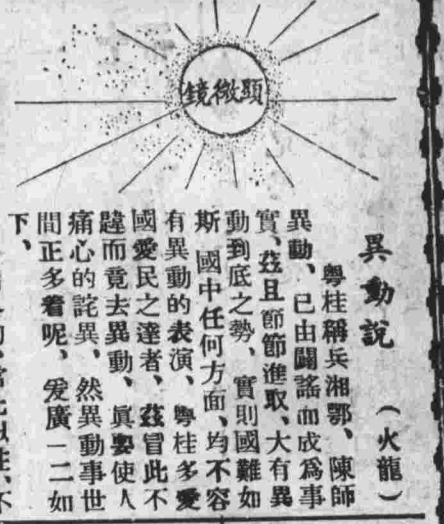 顯微鏡
異動說 （火龍）
粵桂稱兵湘鄂、陳師
異動、已由闢謠而成爲事
實、茲且節節進取、大有異
動到底之勢、實則國難如
斯 國中任何方面、均不容
有異動的表演、粵桂多愛
國愛民之達者、茲冒此不
韙而竟去異動、眞要使人
痛心的詫異、然異動事世
間正多着呢、爰廣一二如
下、